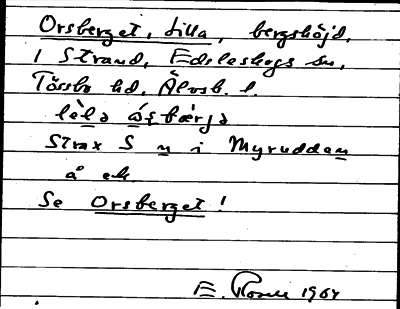 Orsberget, Lilla, bergshöjd,
i Strand, Edsleskogs sn,
Tössbo hd. Älvsb. l.
Strax S n i Myrudden
å ek.
Se Orsberget!
E. 1964